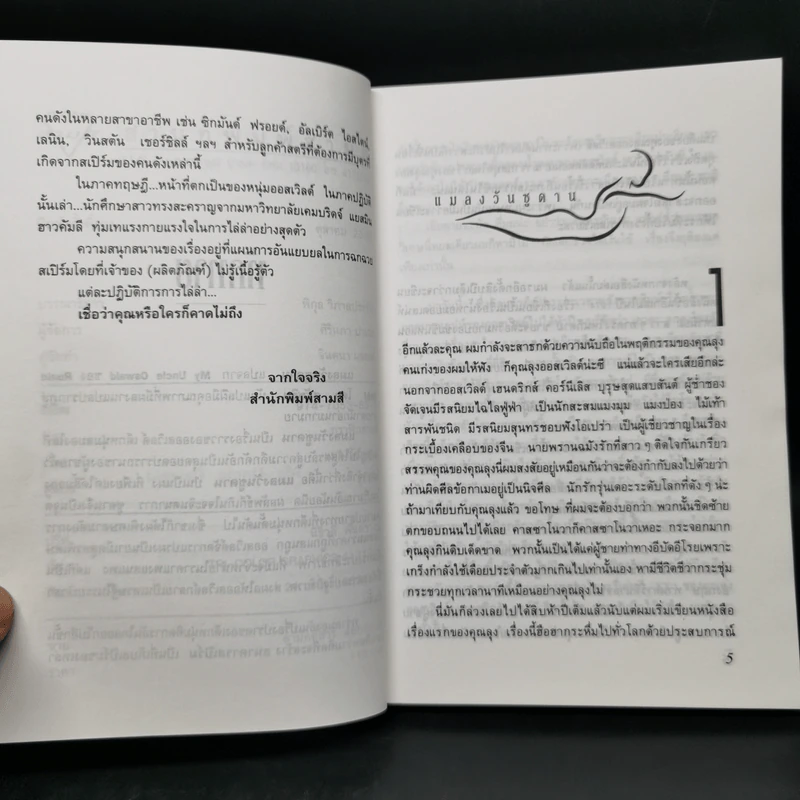 คนดังในหลายสาขาอาชีพ เช่น ซิกมันด์ ฟรอยด์, อัลเบิร์ต ไอสไตน์,
เลนิน, วินสตัน เชอร์ชิลล์ ฯลฯ สำหรับลูกค้าสตรีที่ต้องการมีบุตรที่
เกิดจากสเปิร์มของคนดังเหล่านี้
ในภาคทฤษฎี...หน้าที่ตกเป็นของหนุ่มออสเวิลด์ ในภาคปฏิบัติ
นั้นเล่า...นักศึกษาสาวทรงสะคราญจากมหาวิทยาลัยเคมบริดจ์ แยสมิน
ฮาวคัมลี ทุ่มเทแรงกายแรงใจในการไล่ล่าอย่างสุดตัว
ความสนุกสนานของเรื่องอยู่ที่แผนการอันแยบยลในการฉกฉวย
สเปิร์มโดยที่เจ้าของ (ผลิตภัณฑ์) ไม่รู้เนื้อรู้ตัว
แต่ละปฏิบัติการการไล่ล่า...
เชื่อว่าคุณหรือใครก็คาดไม่ถึง
จากใจจริง
สำนักพิมพ์สามสี
แมลงวันซูดาน
1
อีกแล้วละคุณ ผมกำลังจะสาธกด้วยความนับถือในพฤติกรรมของคุณลุง
คนเก่งของผมให้ฟัง ก็คุณลุงออสเวิลด์น่ะซี แน่แล้วจะใครเสียอีกล่ะ
นอกจากออสเวิลด์ เฮนดริกส์ คอร์นีเลิส บุรุษสุดแสบสันต์ ผู้ช่ำชอง
จัดเจนมีรสนิยมไฉไลฟู่ฟ่า เป็นนักสะสมแมงมุม แมงป่อง ไม้เท้า
สารพันชนิด มีรสนิยมสุนทรชอบฟังโอเปร่า เป็นผู้เชี่ยวชาญในเรื่อง
กระเบื้องเคลือบของจีน นายพรานฉมังรักที่สาว ๆ ติดใจกันเกรียว
สรรพคุณของคุณลุงนี้ผมสงสัยอยู่เหมือนกันว่าจะต้องกำกับลงไปด้วยว่า
ท่านผิดศีลข้อกาเมอยู่เป็นนิจศีล นักรักรุ่นเดอะระดับโลกที่ดัง ๆ น่ะ
ถ้ามาเทียบกับคุณลุงแล้ว ขอโทษ ที่ผมจะต้องบอกว่า พวกนั้นชิดซ้าย
ตกขอบถนนไปได้เลย คาสซาโนวาก็คาสซาโนวาเหอะ กระจอกมาก
คุณลุงกินดิบเด็ดขาด พวกนั้นเป็นได้แค่ผู้ชายท่าทางอีบัดอีโรยเพราะ
เกร็งกำลังใช้เดือยประจำตัวมากเกินไปเท่านั้นเอง หามีชีวิตชีวากระชุ่ม
กระชวยทุกเวลานาทีเหมือนอย่างคุณลุงไม่
นี่มันก็ล่วงเลยไปได้สิบห้าปีเต็มแล้วนับแต่ผมเริ่มเขียนหนังสือ
เรื่องแรกของคุณลุง เรื่องนี้ฮือฮากระหึ่มไปทั่วโลกด้วยประสบการณ์
5